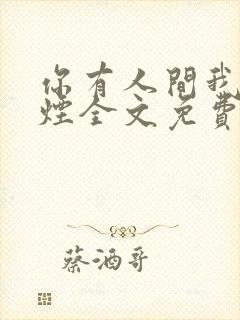 你有人間我
煙全文免費
蔡酒哥